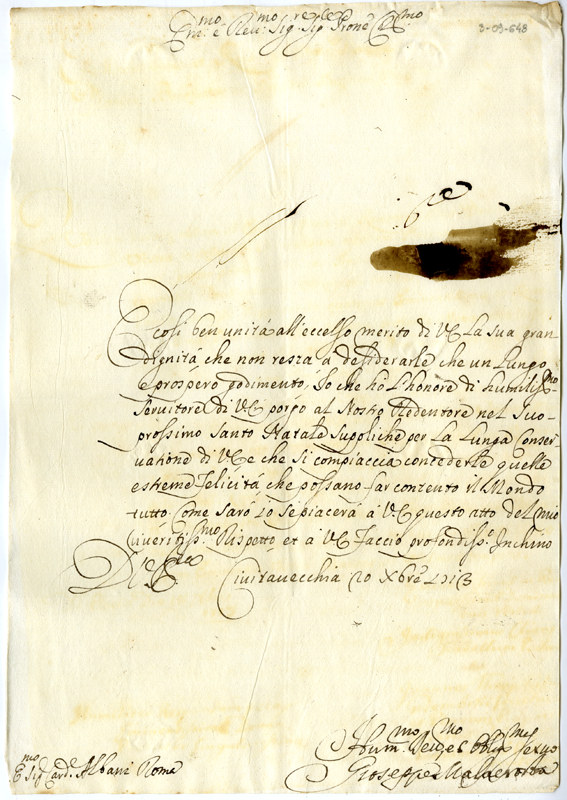 Em.mo e Rev.mo Sig.re Sig.re e Prone Col.mo
3-09-648
È così ben unità all'eccelso merito di VE la sua gran
dignità che non resta a desiderarle che un Lungo
e prospero godimento, Io che hò l'honore di humiliss.mo
servitore di VE porgo al Nostro Redentore nel suo
prossimo Santo Natale supoliche per La Lunga Conser
vatione di VE e che si compiaccia concederle quelle
estreme felicità che possano far contento il Mondo
tutto come sarò io se piacerà à VE questo atto del mio
riveritiss.mo Rispetto et à VE faccio profondiss.o Inchino
Di VE Civitavecchia 20 Xbre
Hum.mo Dev.mo et Obl.mo Servo
Em.mo Sig. Card.e Albani Roma
Gioseppe